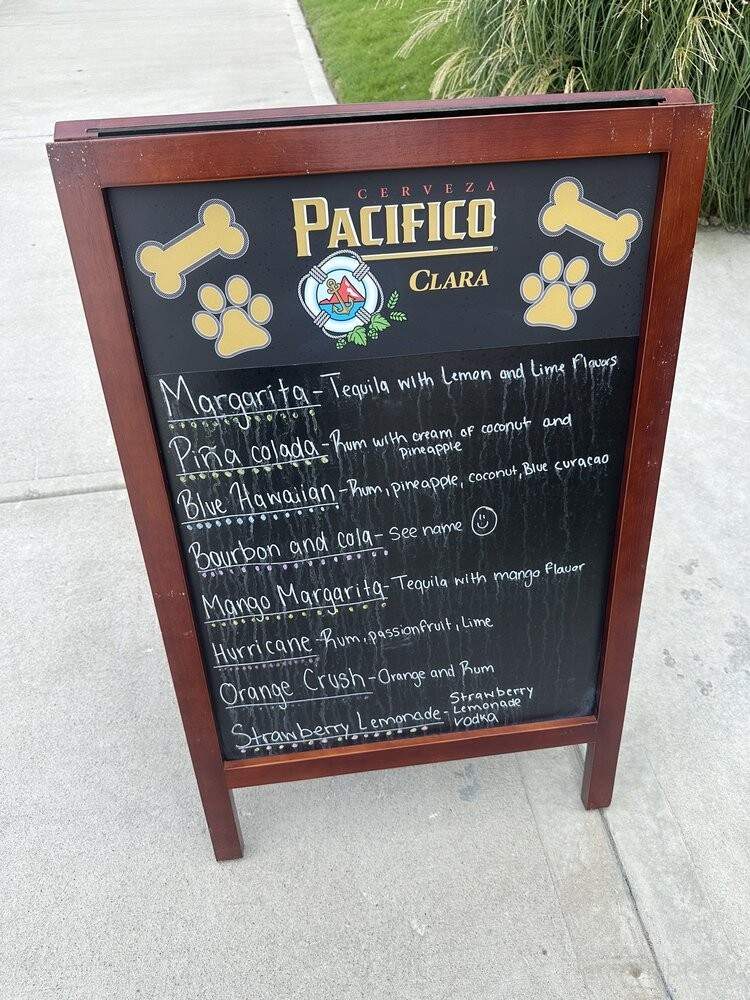 CERVEZA
PACIFICO
CLARA
Margarita - Tequila with Lemon and Lime Flavors
Piña colada - Rum with cream of coconut and
pineapple
Blue Hawaiian - Rum, pineapple, coconut, Blue curacao
Bourbon and cola - see name
Mango Margarita - Tequila with mango flavor
Hurricane - Rum, passionfruit, Lime
Orange Crush - Orange and Rum
Strawberry Lemonade - Strawberry
Lemonade
vodka